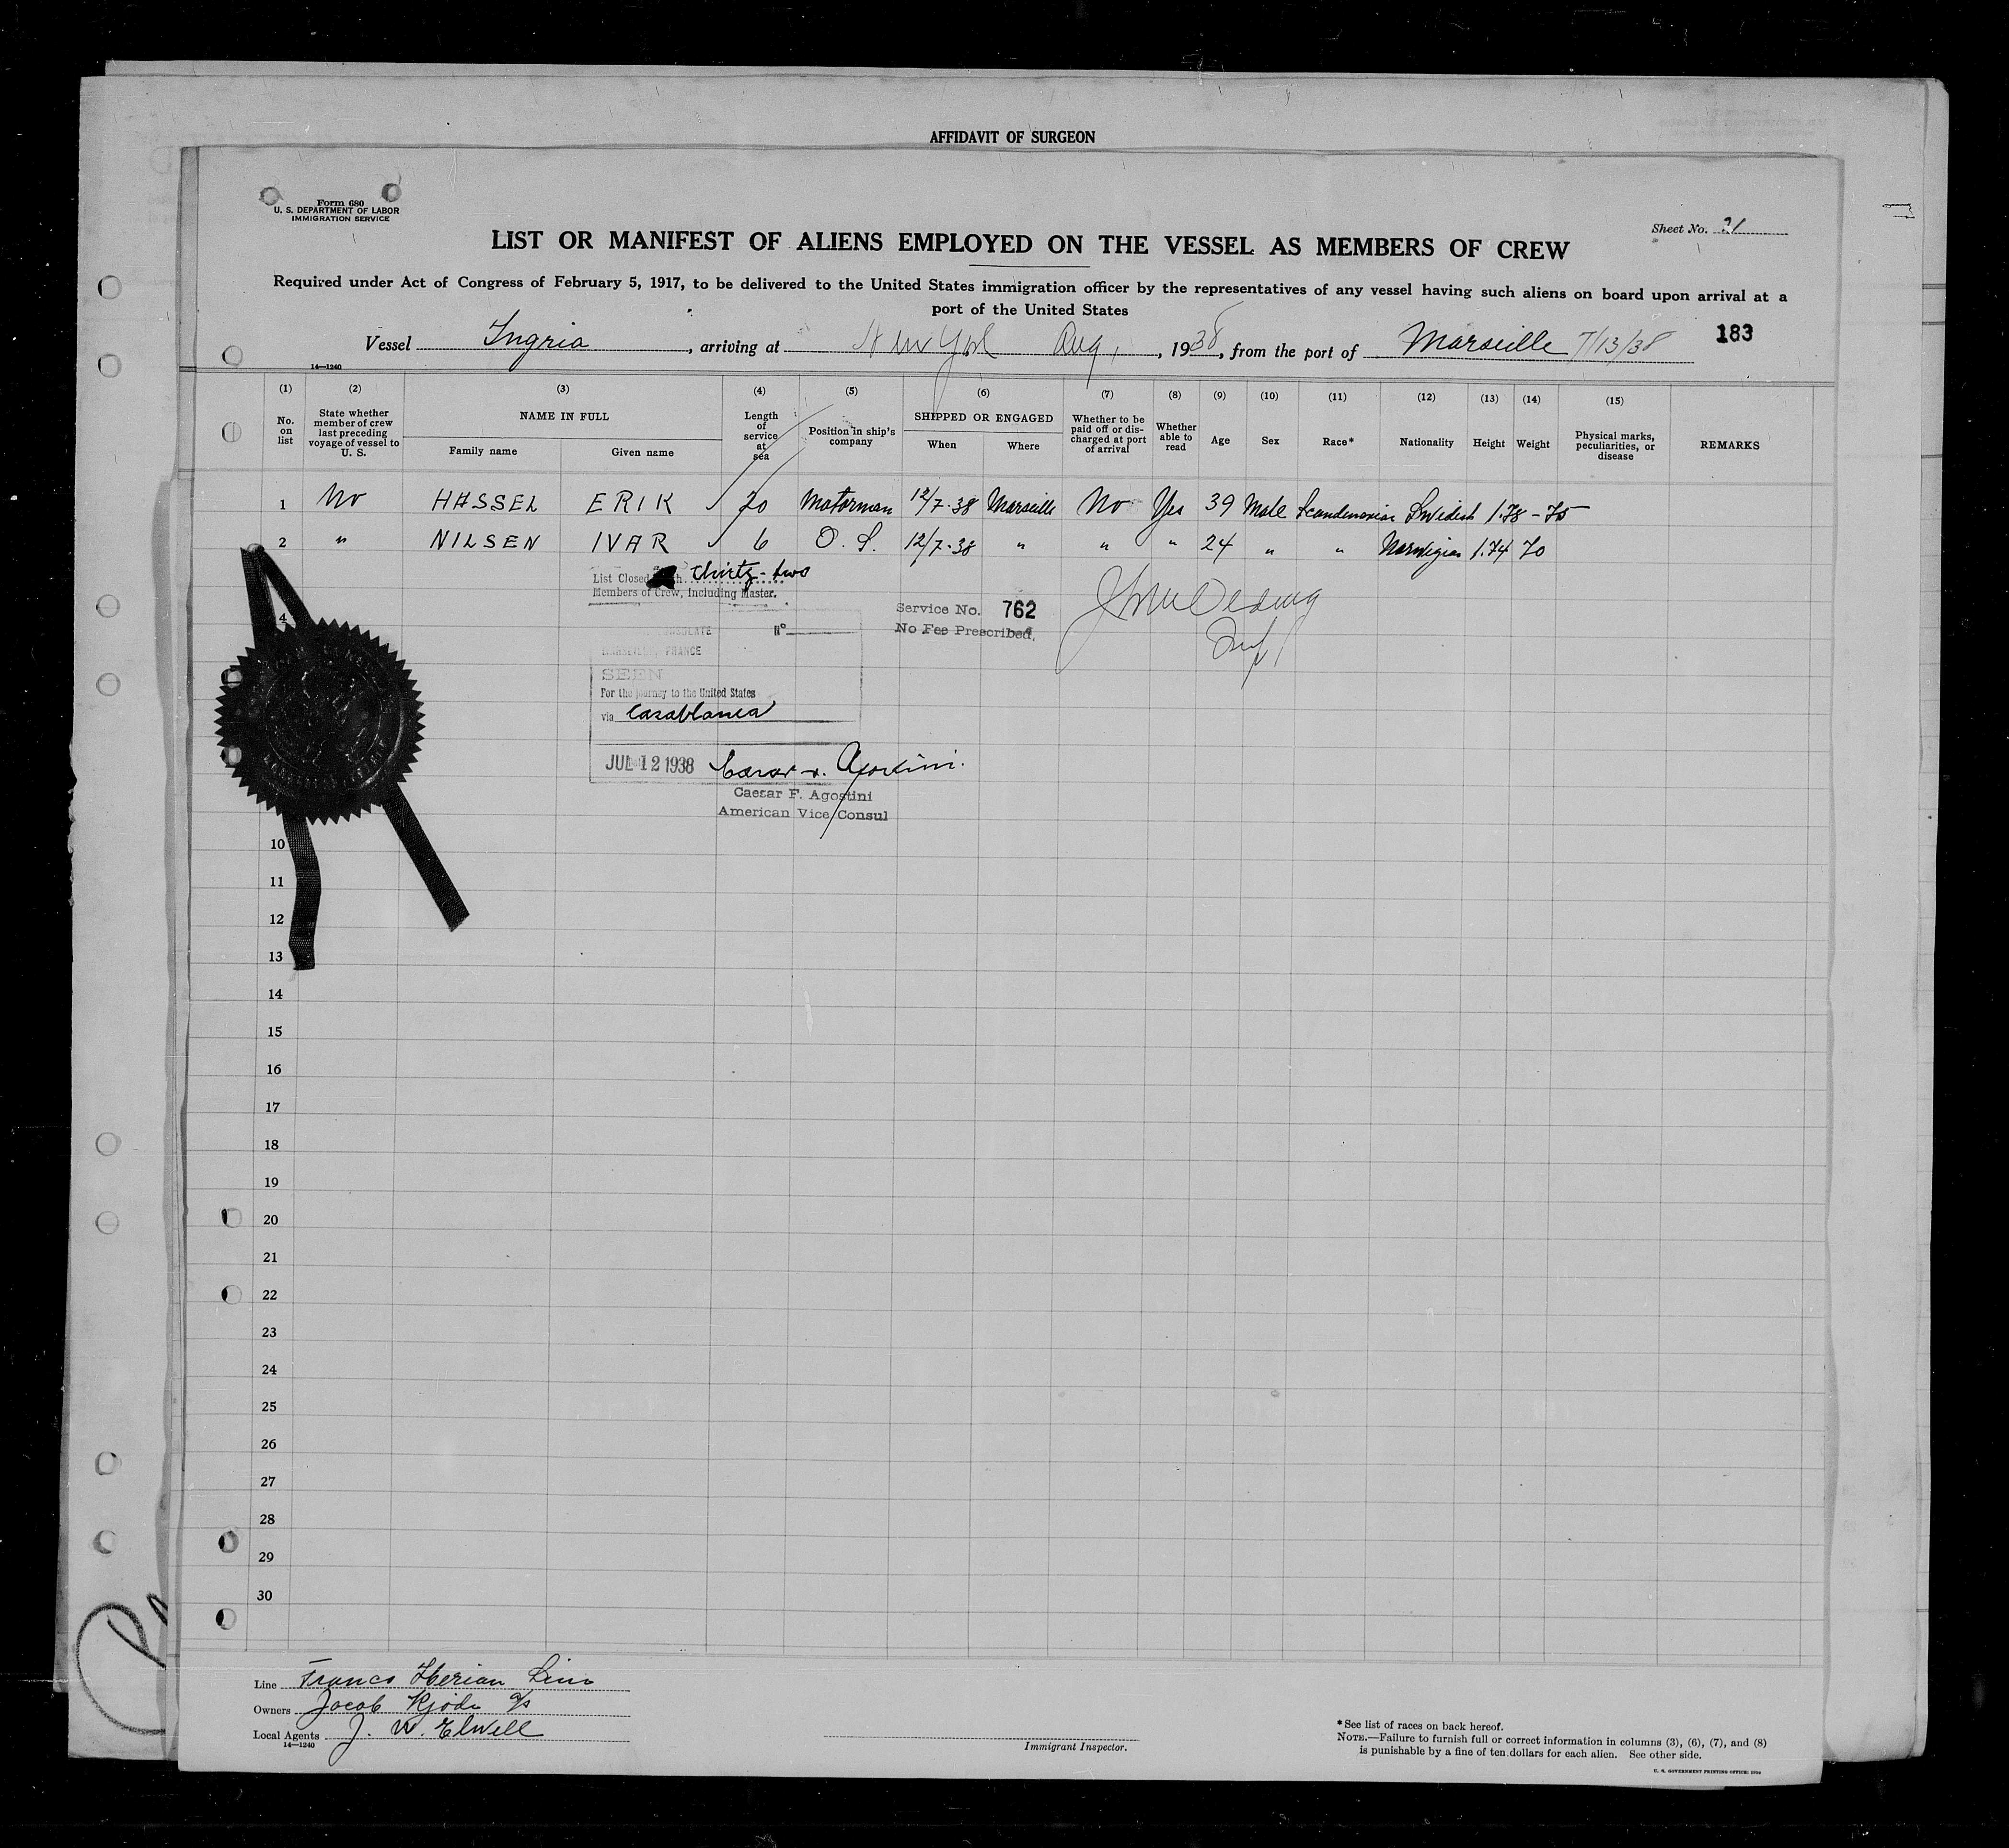 AFFIDAVIT OF SURGEON
Form 680
U. S. DEPARTMENT OF LABOR
IMMIGRATION SERVICE
Sheet No.
LIST OR MANIFEST OF ALIENS EMPLOYED ON THE VESSEL AS MEMBERS OF CREW
Required under Act of Congress of February 5, 1917, to be delivered to the United States immigration officer by the representatives of any vessel having such aliens on board upon arrival at a
port of the United States
183
Vessel Ingria, arriving at New York Aug, 1938, from the port of Marseille 7/13/38
14—1240
(1) (2) (3) (4) (5) (6) (7) (8) (9) (10) (11) (12) (13) (14) (15)
No. on list
State whether member of crew last preceding voyage of vessel to U. S.
NAME IN FULL
Family name
Given name
Length of service at sea
Position in ship's company
SHIPPED OR ENGAGED
When
Where
Whether to be paid off or discharged at port of arrival
Whether able to read
Age
Sex
Race*
Nationality
Height
Weight
Physical marks, peculiarities, or disease
REMARKS
1 No HASSEL ERIK 20 Motorman 12/7-38 Marseille No Yes 39 Male Scandinavian Swedish 1.78 - 75
2 " NILSEN IVAR 6 O. S. 12/7-38 " " " 24 " " Norwegian 1.74 70
List Closed thirty-two
Members of Crew, including Master.
4
Service No. 762
No Fee Prescribed.
Nº
MARSEILLE, FRANCE
SEEN
For the journey to the United States
via Casablanca
JUL 12 1938
Caesar F. Agostini
American Vice Consul
10
11
12
13
14
15
16
17
18
19
20
21
22
23
24
25
26
27
28
29
30
Line Franco Iberian Line
Owners Jacob Kjøde A/S
Local Agents J. W. Elwell
14—1240
Immigrant Inspector.
*See list of races on back hereof.
NOTE.—Failure to furnish full or correct information in columns (3), (6), (7), and (8)
is punishable by a fine of ten dollars for each alien. See other side.
U. S. GOVERNMENT PRINTING OFFICE: